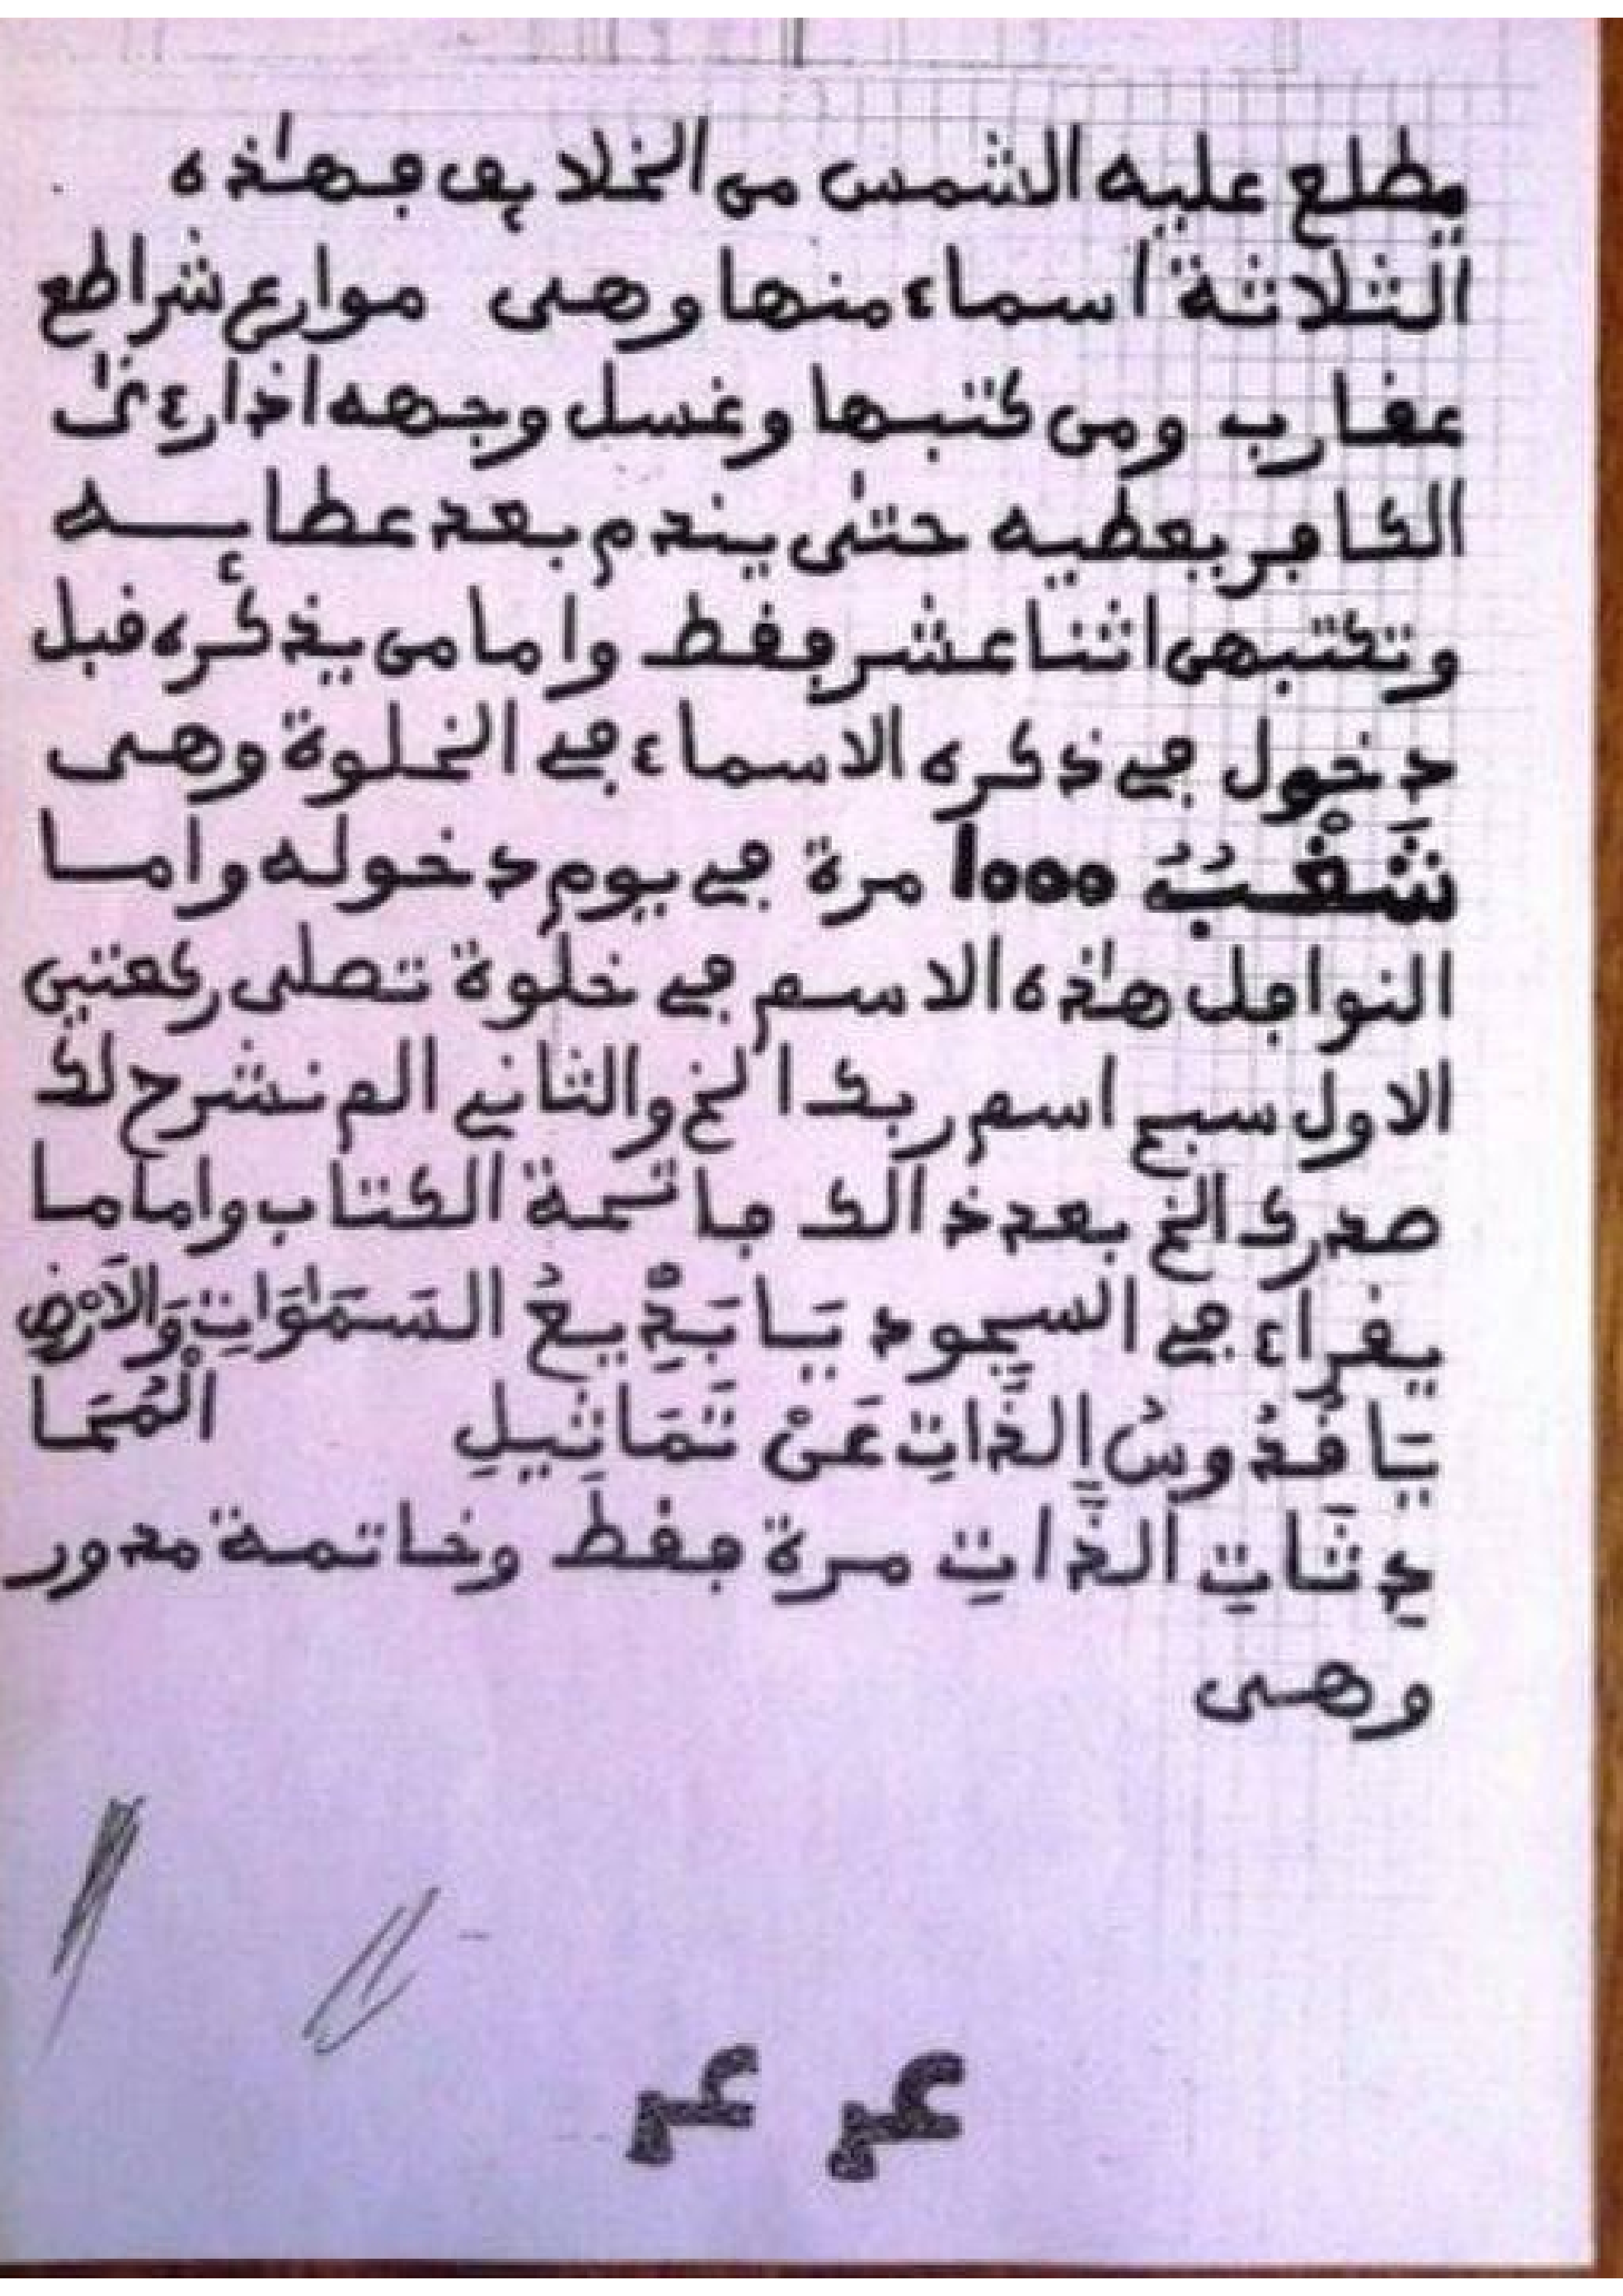 يطلع عليه الشمس من الخلايق فهٰذه
الثلاثة اسماء منها وهى موارع شراطع
عقارب ومن كتبها وغسل وجهه اذا رءىٰ
الكافر يعطيه حتىٰ يندم بعد عطايـــه
وتكتبهن اثنا عشر فقط واما من يذكره قبل
دخول في ذكره الاسماء في الخلوة وهى
شَقْبُدُ 1000 مرة في يوم دخوله وامـا
النوافل هٰذه الاسم في خلوة تصلى ركعتين
الاول سبح اسم ربك الخ والثاني الم نشرح لك
صدرك الخ بعد ذالك فاتحة الكتاب واما ما
يقراء في السجود يَا بَدِيعُ السَمٰوَاتِ وَالَارْضِ
يَا قُدُّوسُ الذَّاتِ عَنْ تَمَاثِيلِ الْمُمَا
ثَنَاتِ الذَّاتِ مرة فقط وخاتمة مدور
وهى